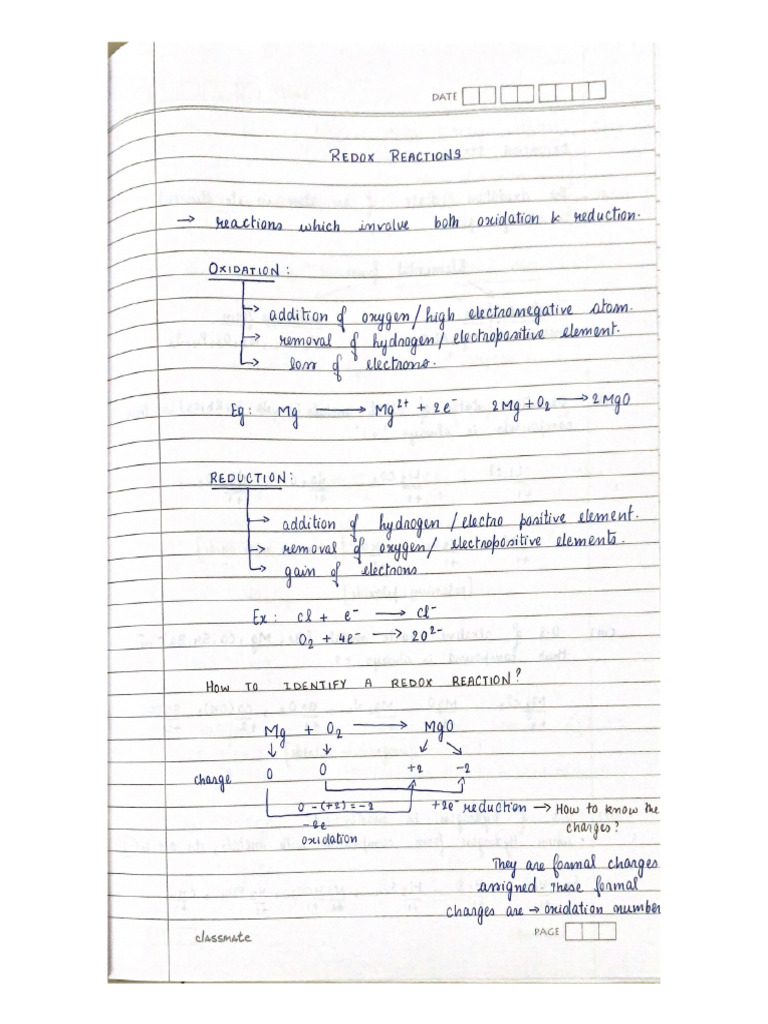 DATE
REDOX REACTIONS
→ reactions which involve both oxidation & reduction.
OXIDATION:
→ addition of oxygen/high electronegative atom.
→ removal of hydrogen/electropositive element.
→ loss of electrons.
Eg: Mg → Mg²⁺ + 2e⁻ 2Mg + O₂ → 2MgO
REDUCTION:
→ addition of hydrogen/electro positive element.
→ removal of oxygen/electropositive elements.
→ gain of electrons
Ex: Cl + e⁻ → Cl⁻
O₂ + 4e⁻ → 2O²⁻
HOW TO IDENTIFY A REDOX REACTION?
Mg + O₂ → MgO
charge 0 0 +2 -2
0-(+2)=-2 +2e⁻ reduction → HOW TO KNOW THE
-2e charges?
oxidation
They are formal charges
assigned. These formal
charges are → oxidation number
classmate PAGE